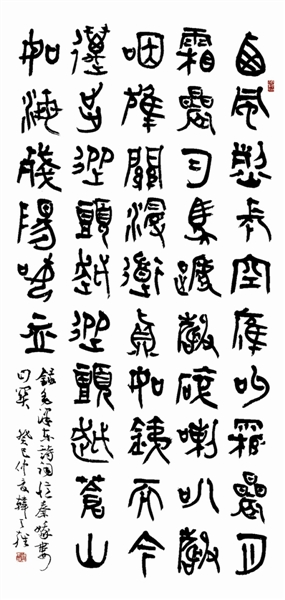 西風烈長空雁叫霜晨月
霜晨月馬蹄聲碎喇叭聲
咽雄關漫道真如鐵而今
邁步從頭越從頭越蒼山
如海殘陽如血
錄毛澤東詩詞憶秦娥婁
山關 癸巳仲夏韓